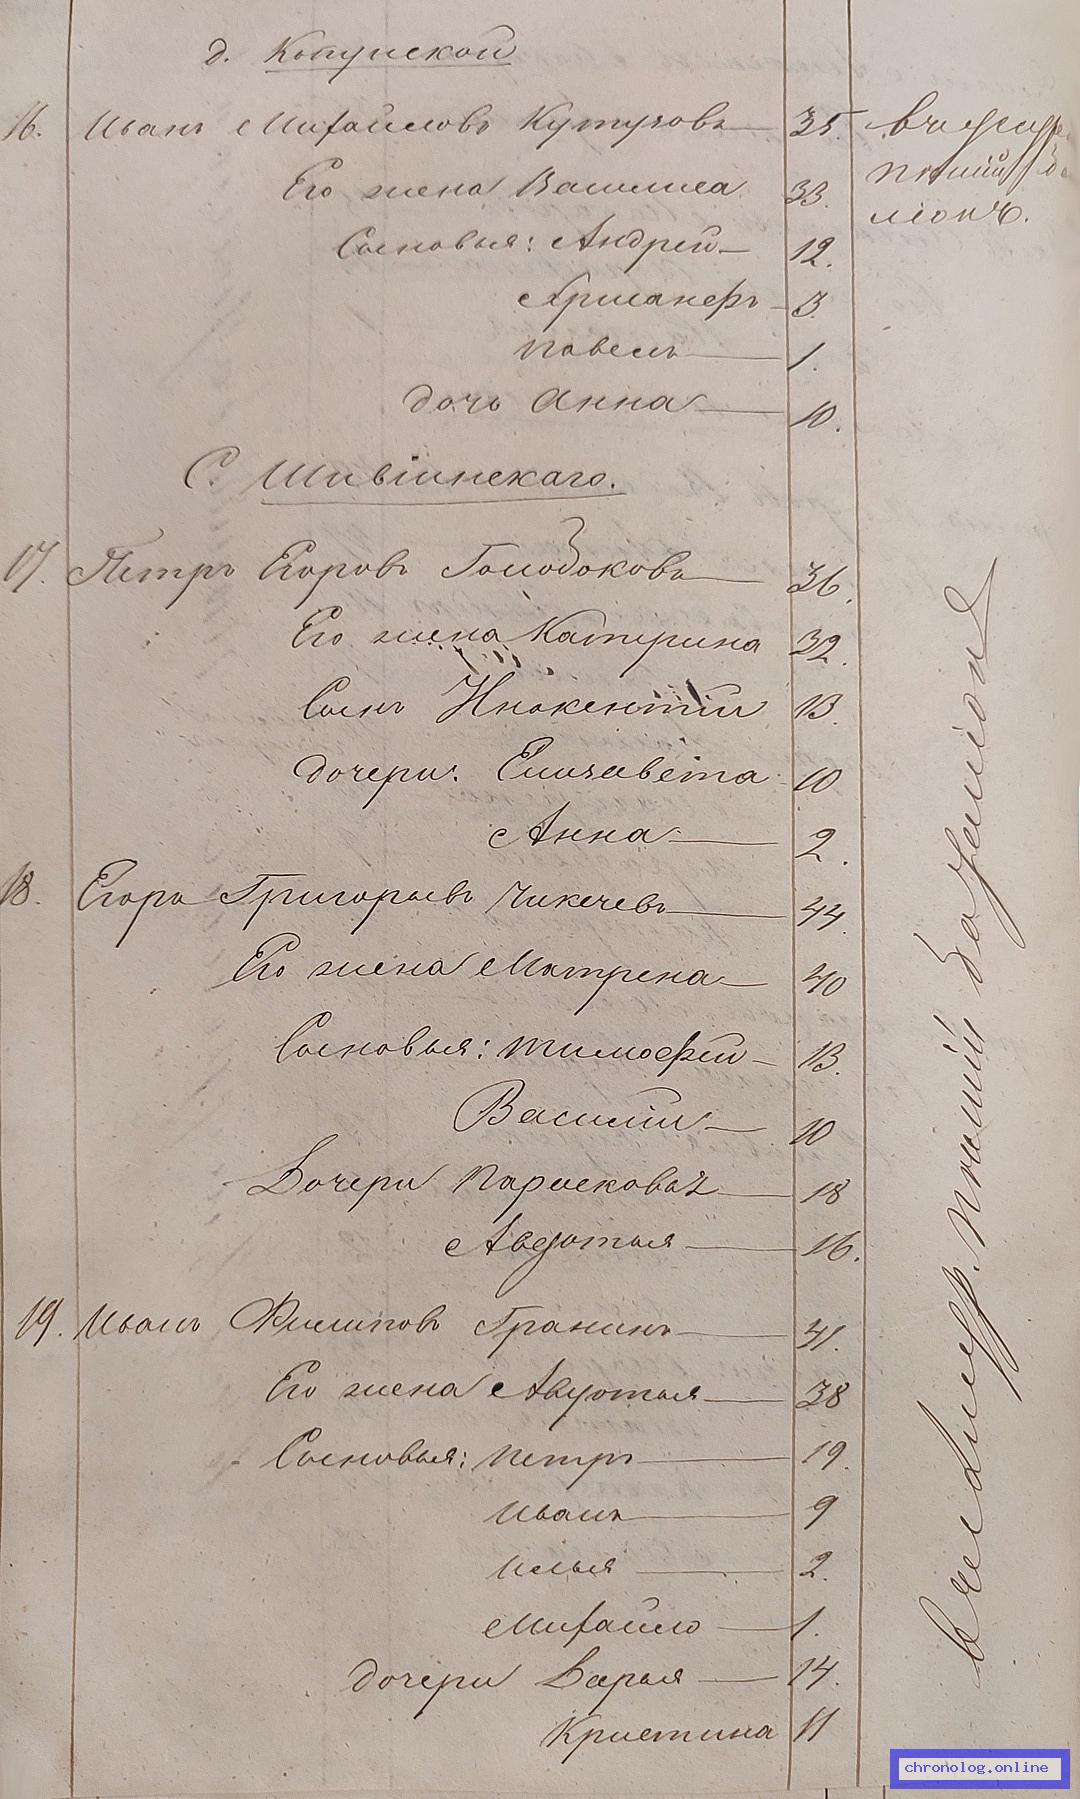 д. Копунской
16. Иванъ Михайловъ Кутузовъ 35.
Его жена Васшиса 33.
Сыновья: Андрей 12.
3.
Павелъ 1.
дочь Анна 10.
С. Шивіинскаго.
17. Петръ Егоровъ Голобоковъ 36.
Его жена Катерина 32.
Сынъ Инокентій 13.
дочери: Елизавета 10
Анна 2.
18. Егоръ Григорьевъ Чикичевъ 44.
Его жена Матрена 40
Сыновья: Тимофей 13.
Василій 10
Дочери Парасковья 18
Авдотья 16.
19. Иванъ Филиповъ Гранинъ 41.
Его жена Авдотья 38
Сыновья: Петръ 19.
Иванъ 9
Илья 2.
Михайло 1.
дочери Дарья 14.
Кристина 11
пѣшій
пѣшій баталіонъ
chronolog.online